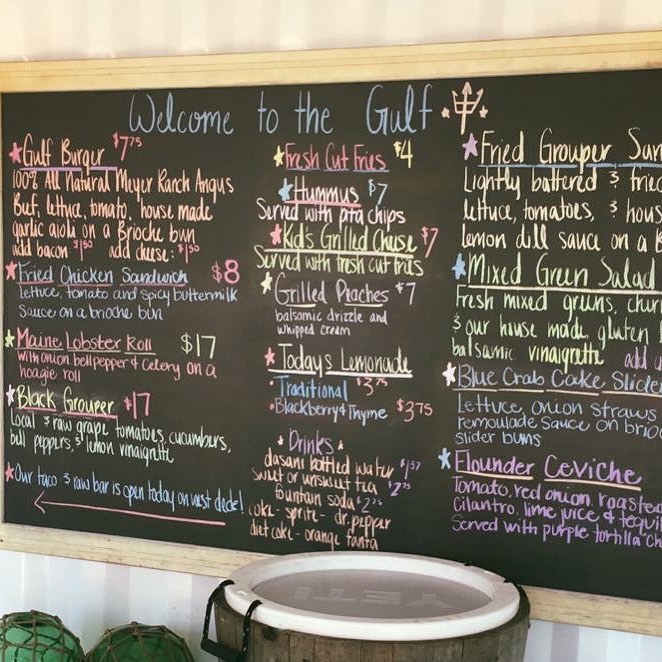 Welcome to the Gulf
Gulf Burger $7.75
100% All Natural Meyer Ranch Angus
Beef, lettuce, tomato, house made
garlic aioli on a Brioche bun
add bacon $1.50 add cheese: $1.50
Fried Chicken Sandwich $8
lettuce, tomato and spicy buttermilk
sauce on a brioche bun
Maine Lobster Roll $17
with onion bell pepper & Celery on a
hoagie roll
Black Grouper $17
local & raw grape tomatoes, cucumbers,
bell peppers, & lemon vinaigrette
Our taco & raw bar is open today on west deck!
Fresh Cut Fries $4
Hummus $7
Served with pita chips
Kid's Grilled Cheese $7
Served with fresh cut fries
Grilled Peaches $7
balsamic drizzle and
whipped cream
Todays Lemonade
Traditional $3.75
Blackberry & Thyme $3.75
Drinks
dasani bottled water
sweet or unsweet tea $2.75
fountain soda $2.75
coke - sprite - dr. pepper
diet coke - orange fanta
Fried Grouper San
Lightly battered & fried
lettuce, tomatoes, & hous
lemon dill sauce on a B
Mixed Green Salad
Fresh mixed greens,
& our house made, gluten
balsamic vinaigrette add
Blue Crab Cake Slide
Lettuce, onion straws
remoulade sauce on brio
slider buns
Flounder Ceviche
Tomato, red onion, roasted
Cilantro, lime juice & tequi
Served with purple tortilla ch
YETI